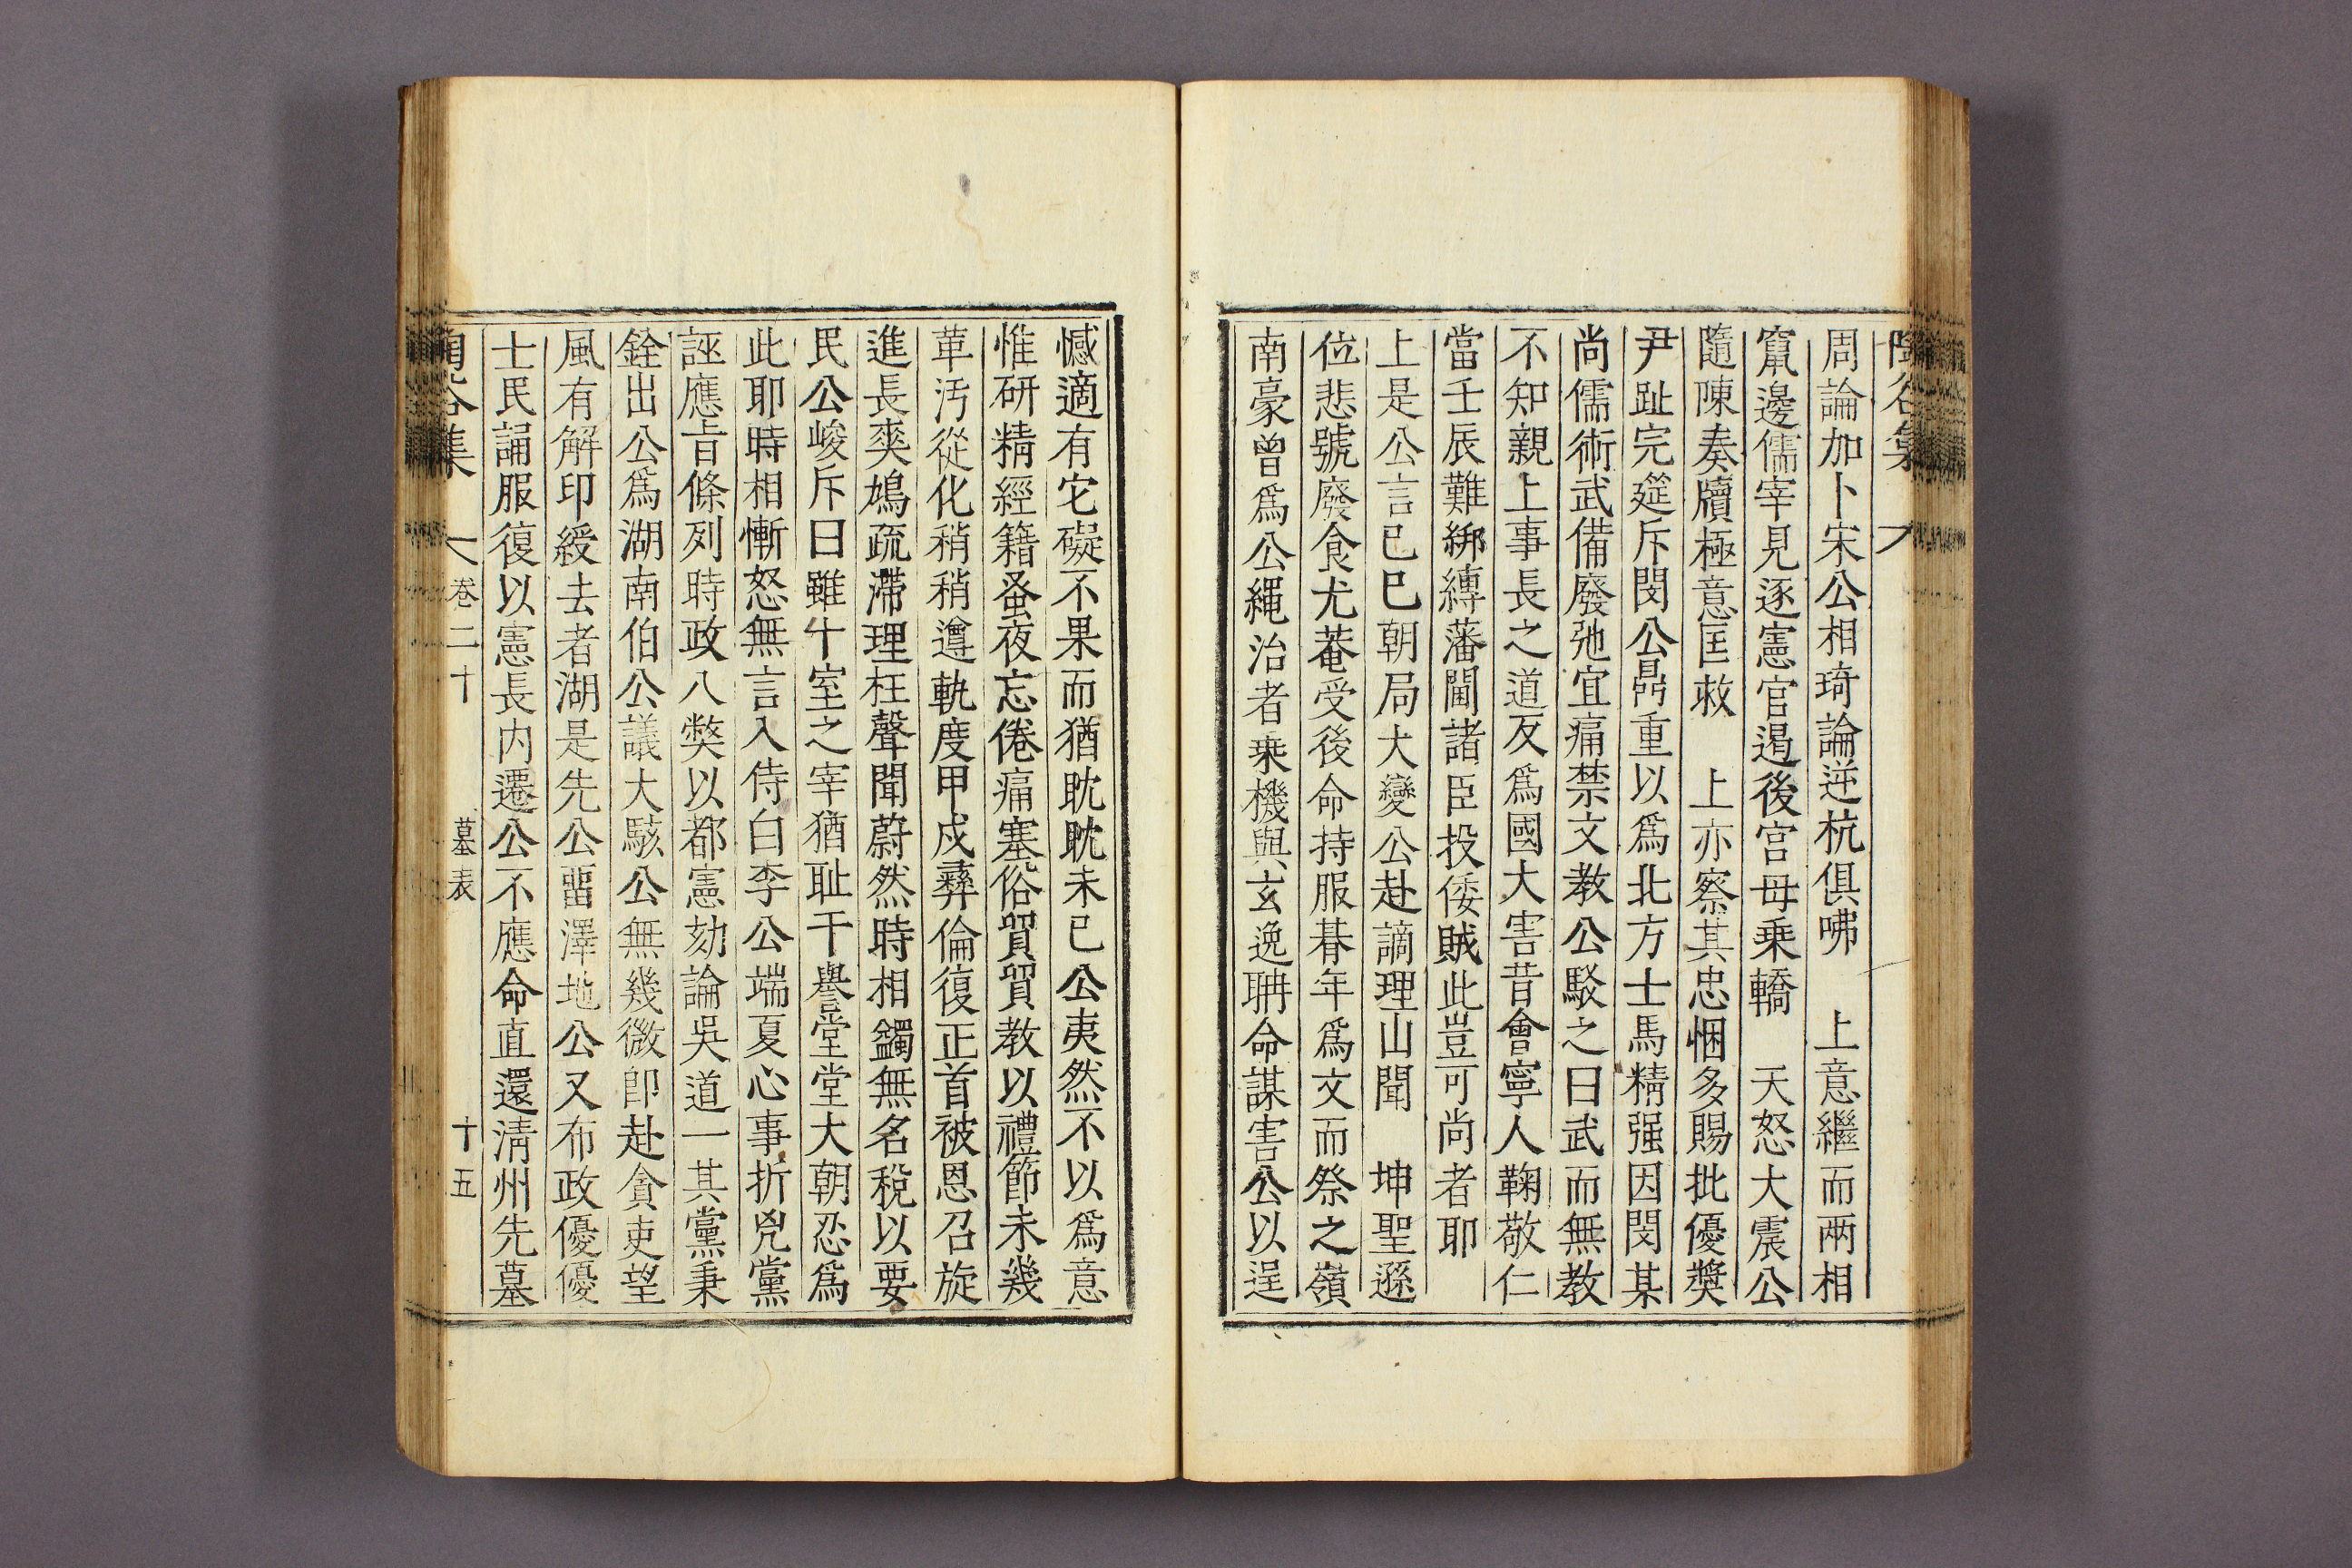 周論加卜宋公相琦論逆杭俱咈　上意繼而兩相
竄邊儒宰見逐憲官遏後宮母乗轎　天怒大震公
隨陳奏牘極意匡救　上亦察其忠悃多賜批優奬
尹趾完筵斥閔公鼎重以爲北方士馬精强因閔某
尚儒術武備廢弛宜痛禁文教公駁之曰武而無教
不知親上事長之道反爲國大害昔會寧人鞠敬仁
當壬辰難綁縛藩閫諸臣投倭賊此豈可尚者耶
上是公言己巳朝局大變公赴謫理山聞　坤聖遜
位悲號廢食尤菴受後命持服朞年爲文而祭之嶺
南豪曾爲公繩治者乗機與玄逸聃命謀害公以逞
憾適有它礙不果而猶眈眈未已公夷然不以爲意
惟研精經籍蚤夜忘倦痛塞俗貿貿教以禮節未幾
革汚從化稍稍遵軌度甲戌彛倫復正首被恩召旋
進長奭鳩疏滯理枉聲聞蔚然時相蠲無名稅以要
民公峻斥曰雖十室之宰猶耻干譽堂堂大朝忍爲
此耶時相慚怒無言入侍白李公端夏心事折兇黨
誣應旨條列時政八獘以都憲劾論吳道一其黨秉
銓出公爲湖南伯公議大駭公無幾微卽赴貪吏望
風有解印綬去者湖是先公畱澤地公又布政優優
士民誦服復以憲長内遷公不應命直還淸州先墓
集　卷二十　墓表　十五